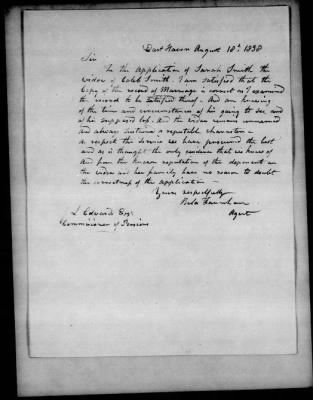 East Haven August 10th 1838
Sir
In the application of Sarah Smith the
widow of Caleb Smith. I am satisfied that the
Copy of the record of Marriage is correct as I examined
the record to be satisfied thereof - And am knowing
of the time and circumstances of his going to sea and
of his supposed loss. And the widow remains unmarried
and always sustained a reputable character -
As respect the service we have procured the best
and as is thought the only evidence that we know of
And from the known reputation of the deponent on
the widow and her family have no reason to doubt
the correctness of the application -
Yours respectfully
Bela Farnham
Agent
L Edwards Esqr.
Commissioner of Pensions